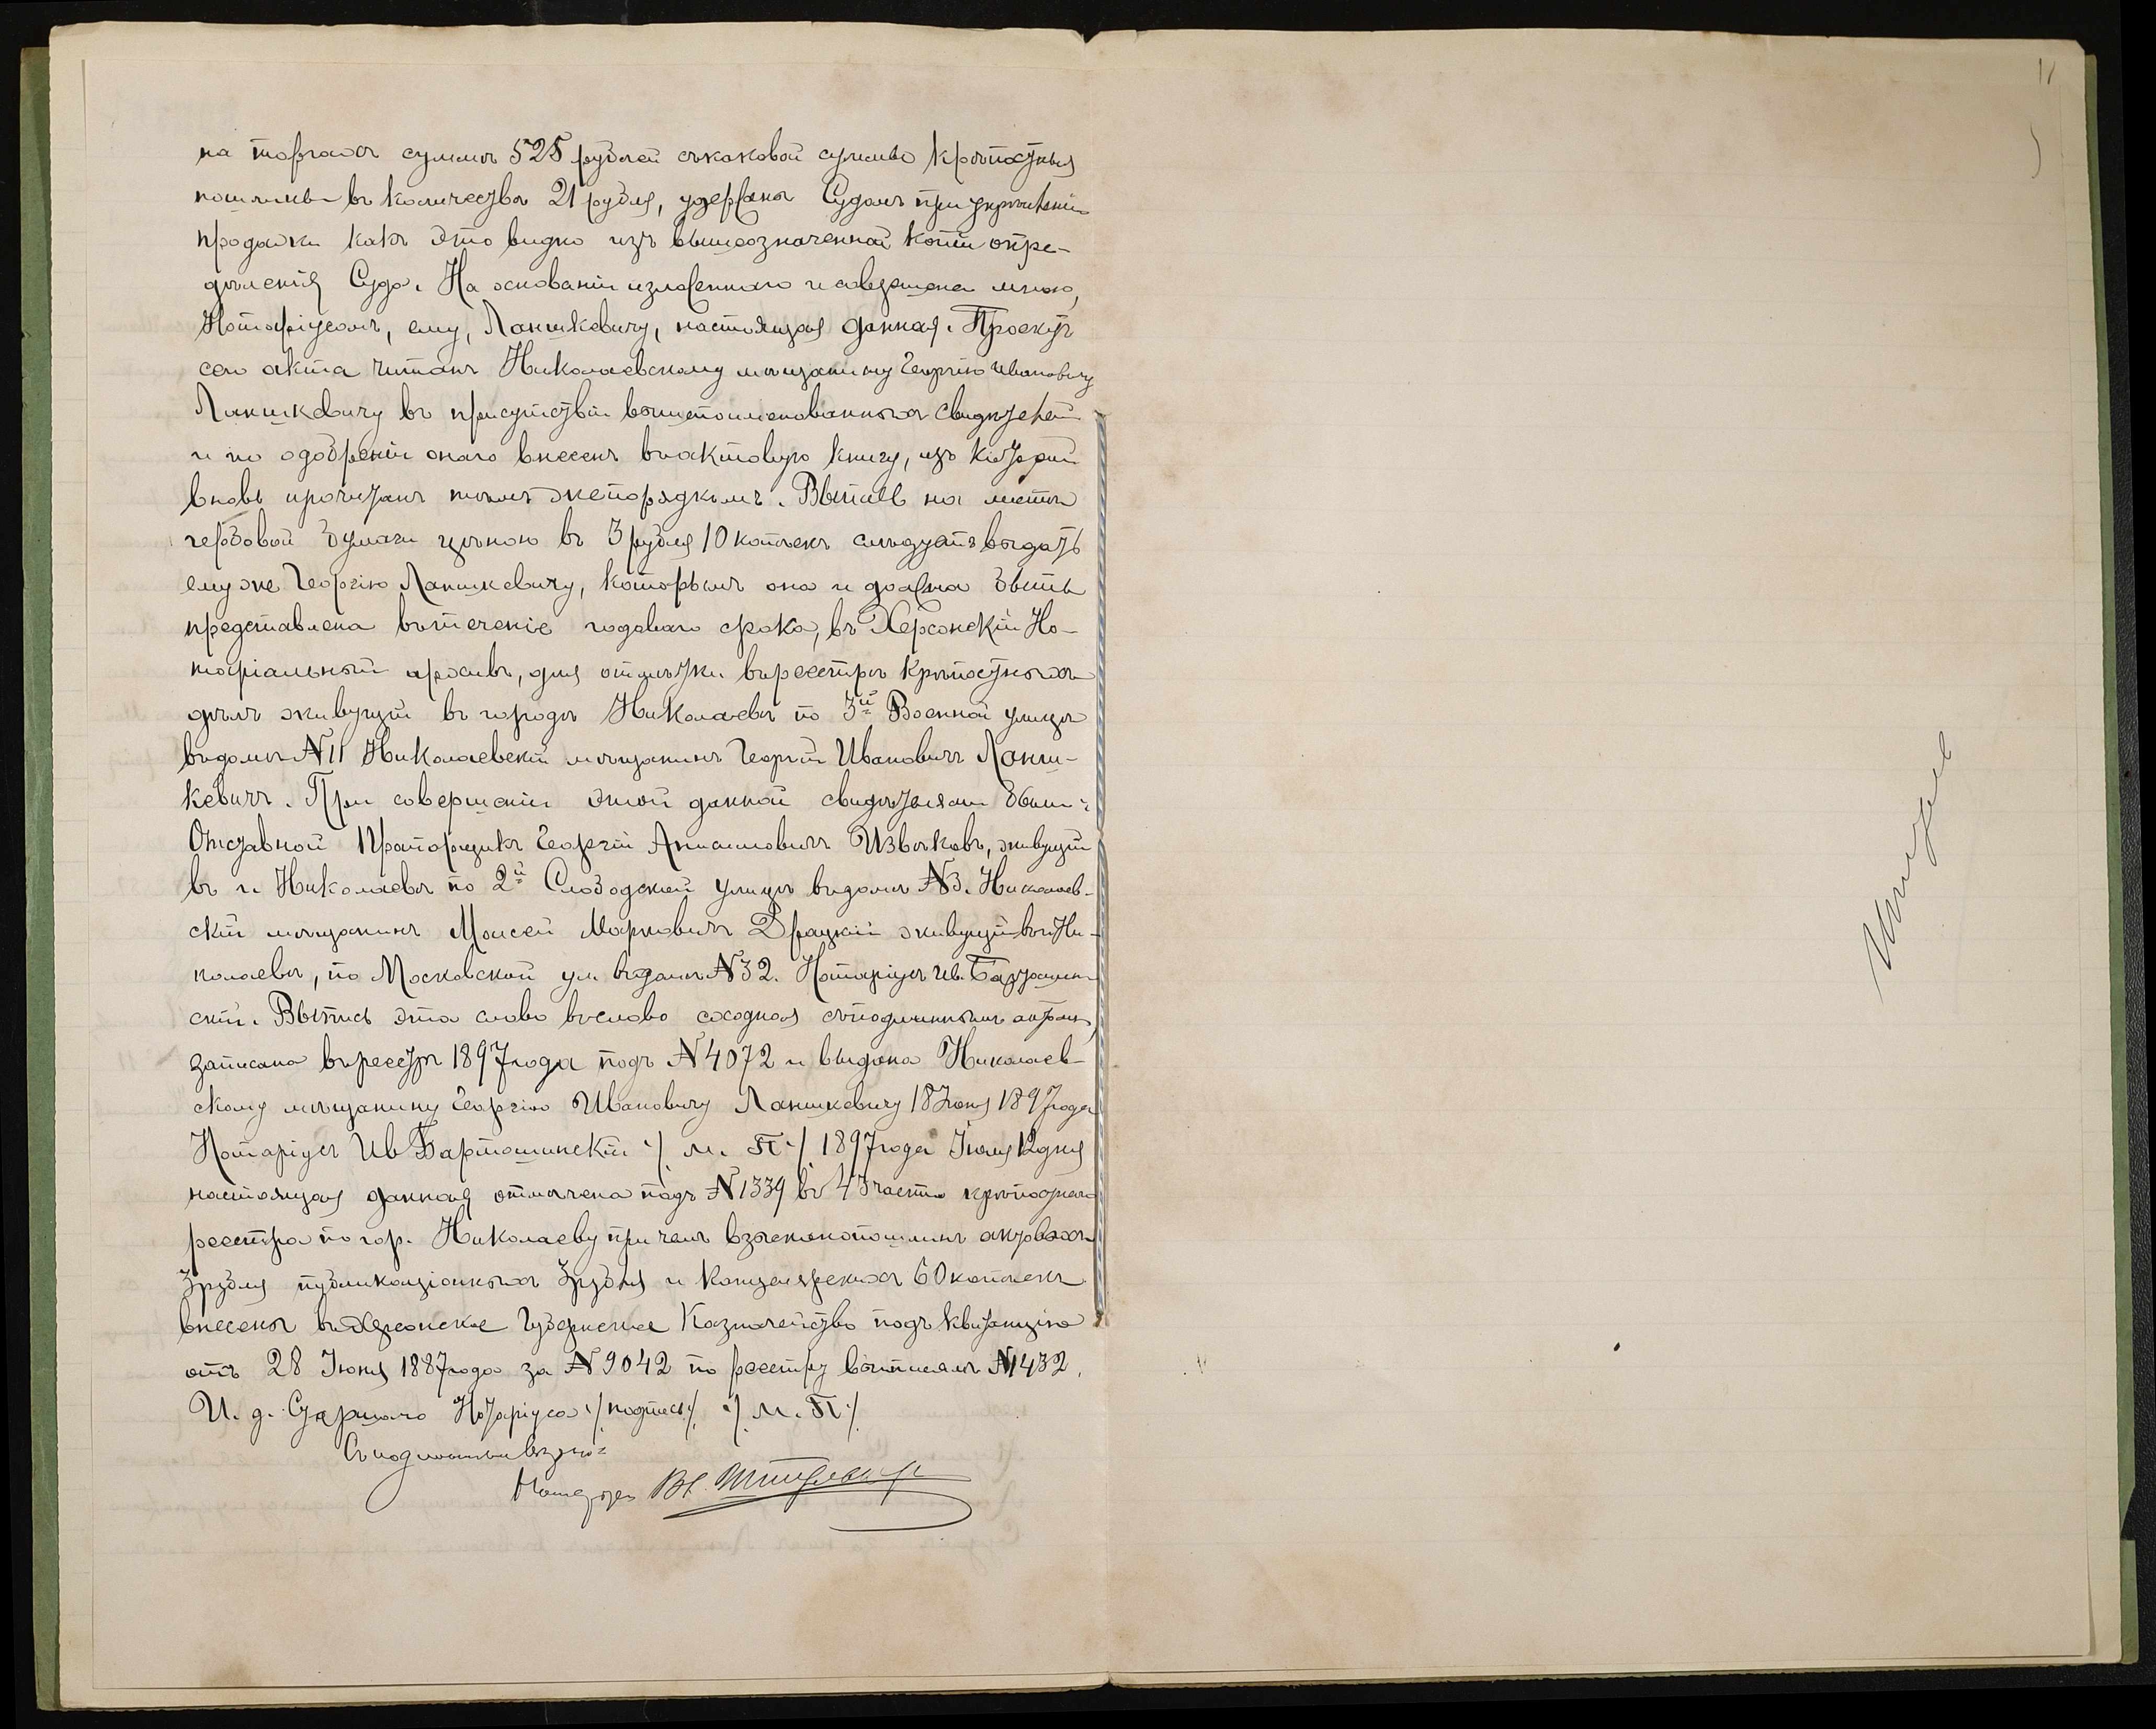 на торгахъ суммы 525 рублей съ каковой суммы крѣпостныя
пошлины въ количествѣ 21 рубля, удержаны Судомъ при укрѣпленіи
продажи какъ это видно изъ вышеозначенной копіи опре-
дѣленія Суда. На основаніи изложеннаго и совершена мною,
Нотаріусомъ, ему, Ланшкевичу, настоящая данная. Проектъ
сего акта читанъ Николаевскому мѣщанину Георгію Ивановичу
Ланшкевичу въ присутствіи вышепоименованныхъ свидѣтелей
и по одобреніи онаго внесенъ въ актовую книгу, изъ которой
вновь прочитанъ тѣмъ же порядкомъ. Выпись на листѣ
гербовой бумаги цѣною въ 3 рубля 10 копѣекъ слѣдуетъ выдать
ему же Георгію Ланшкевичу, которымъ она и должна быть
представлена въ теченіе годоваго срока, въ Херсонскій Но-
таріальный архивъ, для отмѣтки въ реестрѣ крѣпостныхъ
дѣлъ живущій въ городѣ Николаевѣ по 3й Военной улицѣ
въ домѣ № 11 Николаевскій мѣщанинъ Георгій Ивановичъ Ланш-
кевичъ. При совершеніи этой данной свидѣтелями были:
Отставной Прапорщикъ Георгій Анисимовичъ Извѣковъ, живущій
въ г. Николаевѣ по 2й Слободской улицѣ въ домѣ № 3. Николаев-
скій мѣщанинъ Моисей Марковичъ Драцкій живущій въ г. Ни-
колаевѣ, по Московской ул. въ домѣ № 32. Нотаріусъ Ив. Бартошин-
скій. Выпись эта слово въ слово сходная съ подлиннымъ актомъ,
записана въ реестръ 1897 года подъ № 4072 и выдана Николаев-
скому мѣщанину Георгію Ивановичу Ланшкевичу 18 Іюня 1897 года
Нотаріусъ Ив Бартошинскій ./ м. П ./ 1897 года Іюля 12 дня
настоящая данная отмѣчена подъ № 1339 въ 43 части крѣпостнаго
реестра по гор. Николаеву при чемъ взысканопошлинъ актовыхъ
3 рубля публикаціонныхъ 3 рубля и канцелярскихъ 60 копѣекъ
внесены въ Херсонское Губернское Казначейство подъ квитанцію
отъ 28 Іюня 1887 года за № 9042 по реестру выписямъ № 1432.
И. д. Старшаго Нотаріуса ./ подпись ./ ./ м. П ./
Съ подлиннымъ вѣрно:
Нотаріусъ
11